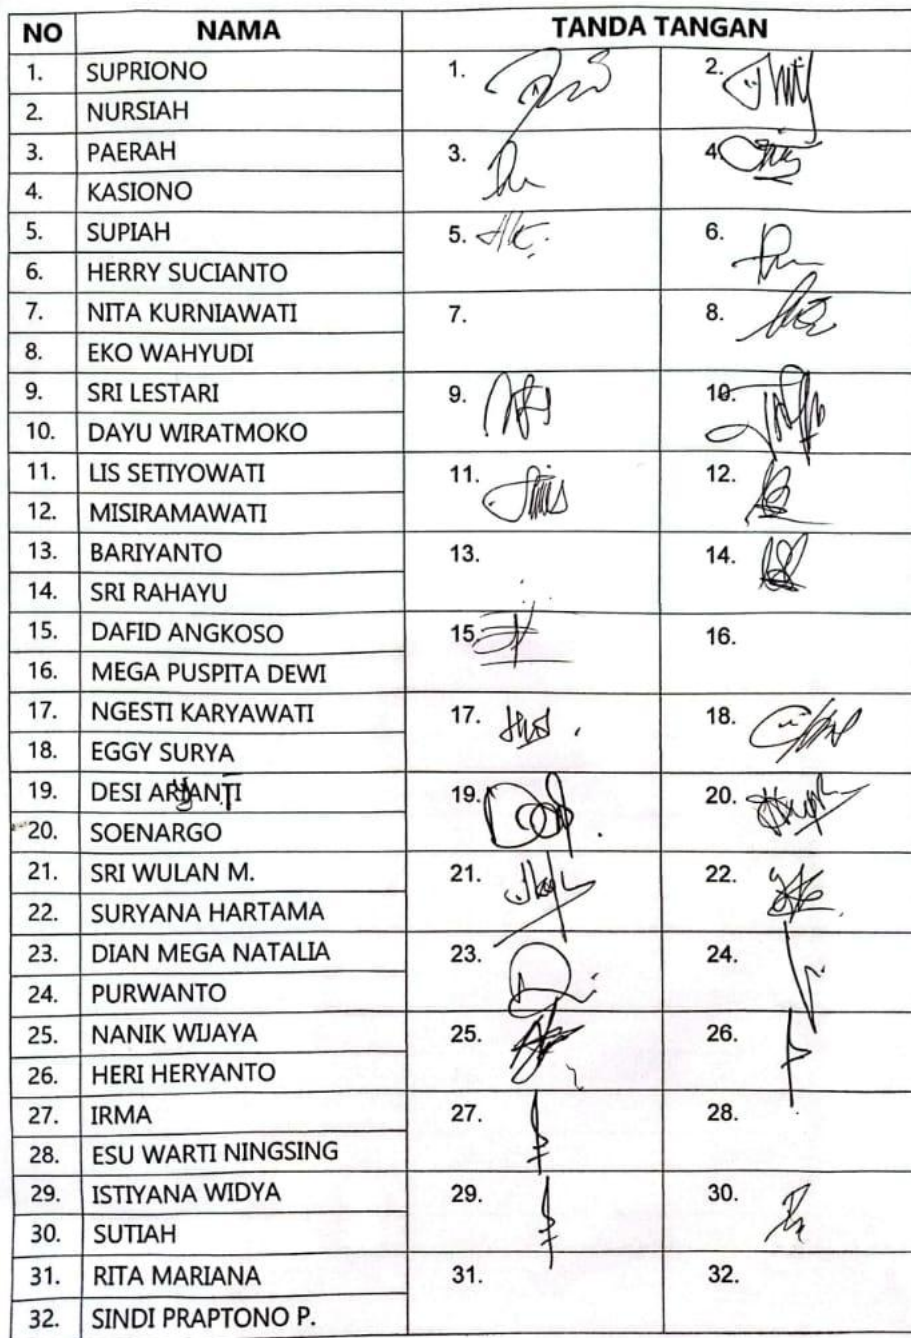 NO NAMA TANDA TANGAN
1. SUPRIONO 1. 2.
2. NURSIAH
3. PAERAH 3. 4.
4. KASIONO
5. SUPIAH 5. 6.
6. HERRY SUCIANTO
7. NITA KURNIAWATI 7. 8.
8. EKO WAHYUDI
9. SRI LESTARI 9. 10.
10. DAYU WIRATMOKO
11. LIS SETIYOWATI 11. 12.
12. MISIRAMAWATI
13. BARIYANTO 13. 14.
14. SRI RAHAYU
15. DAFID ANGKOSO 15. 16.
16. MEGA PUSPITA DEWI
17. NGESTI KARYAWATI 17. 18.
18. EGGY SURYA
19. DESI 19. 20.
20. SOENARGO
21. SRI WULAN M. 21. 22.
22. SURYANA HARTAMA
23. DIAN MEGA NATALIA 23. 24.
24. PURWANTO
25. NANIK WIJAYA 25. 26.
26. HERI HERYANTO
27. IRMA 27. 28.
28. ESU WARTI NINGSING
29. ISTIYANA WIDYA 29. 30.
30. SUTIAH
31. RITA MARIANA 31. 32.
32. SINDI PRAPTONO P.